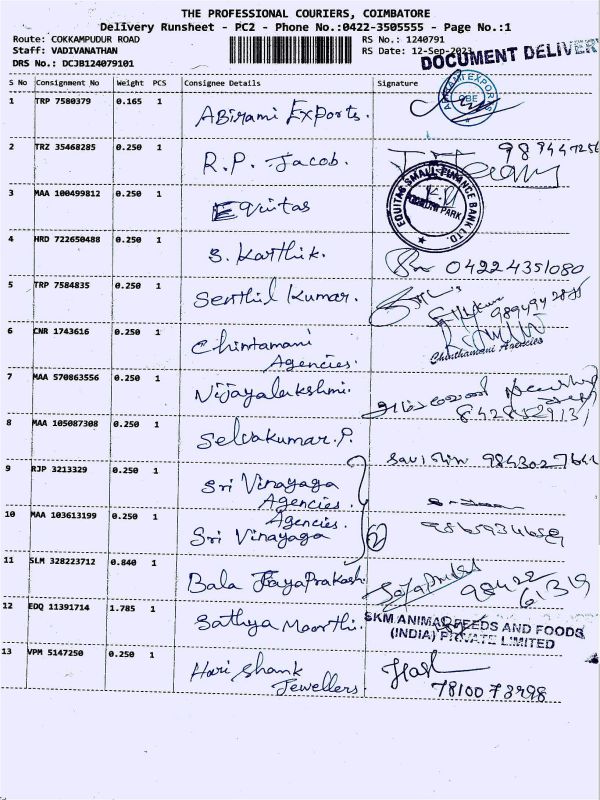 THE PROFESSIONAL COURIERS, COIMBATORE
Delivery Runsheet - PC2 - Phone No.:0422-3505555 - Page No.:1
Route: COKKAMPUDUR ROAD RS No.: 1240791
Staff: VADIVANATHAN RS Date: 12-Sep-2023
DRS No.: DCJB124079101
DOCUMENT DELIVERY
S No Consignment No Weight PCS Consignee Details Signature
1 TRP 7580379 0.165 1 Abirami Exports.
ABIRAMI EXPORTS CBE
2 TRZ 35468285 0.250 1 R.P. Jacob.
3 MAA 100499812 0.250 1 Equitas
EQUITAS SMALL FINANCE BANK LTD. PARK
4 HRD 722650488 0.250 1 S. Karthik. 04224351080
5 TRP 7584835 0.250 1 Senthil Kumar.
6 CNR 1743616 0.250 1 Chintamani
Agencies. Chinthamani Agencies
7 MAA 570863556 0.250 1 Vijayalakshmi.
8 MAA 105087308 0.250 1 Selvakumar.P.
9 RJP 3213329 0.250 1 Sri Vinayaga
Agencies.
10 MAA 103613199 0.250 1 Agencies. 2
Sri Vinayaga
11 SLM 328223712 0.840 1 Bala JayaPrakash 98422
61319
12 EDQ 11391714 1.785 1 Sathya Moorthi.
SKM ANIMAL FEEDS AND FOODS
(INDIA) PRIVATE LIMITED
13 VPM 5147250 0.250 1 Hari Shank
Jewellers. 7810073998